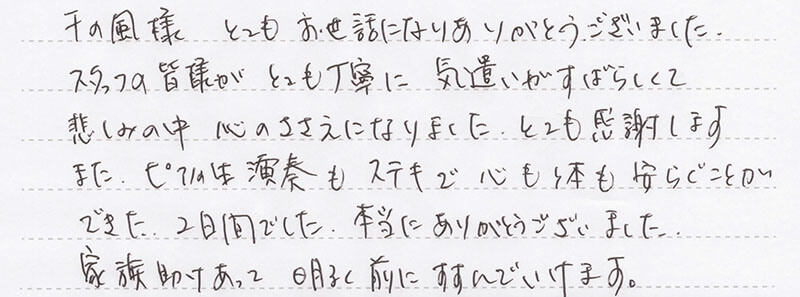 千の風様 とてもお世話になりありがとうございました.
スタッフの皆様が とても丁寧に 気遣いがすばらしくて
悲しみの中 心のささえになりました. とても感謝します
また. ピアノの生演奏も ステキで 心も体も 安らぐことが
できた. 2日間でした. 本当にありがとうございました.
家族助けあって 明るく前に すすんでいけます。